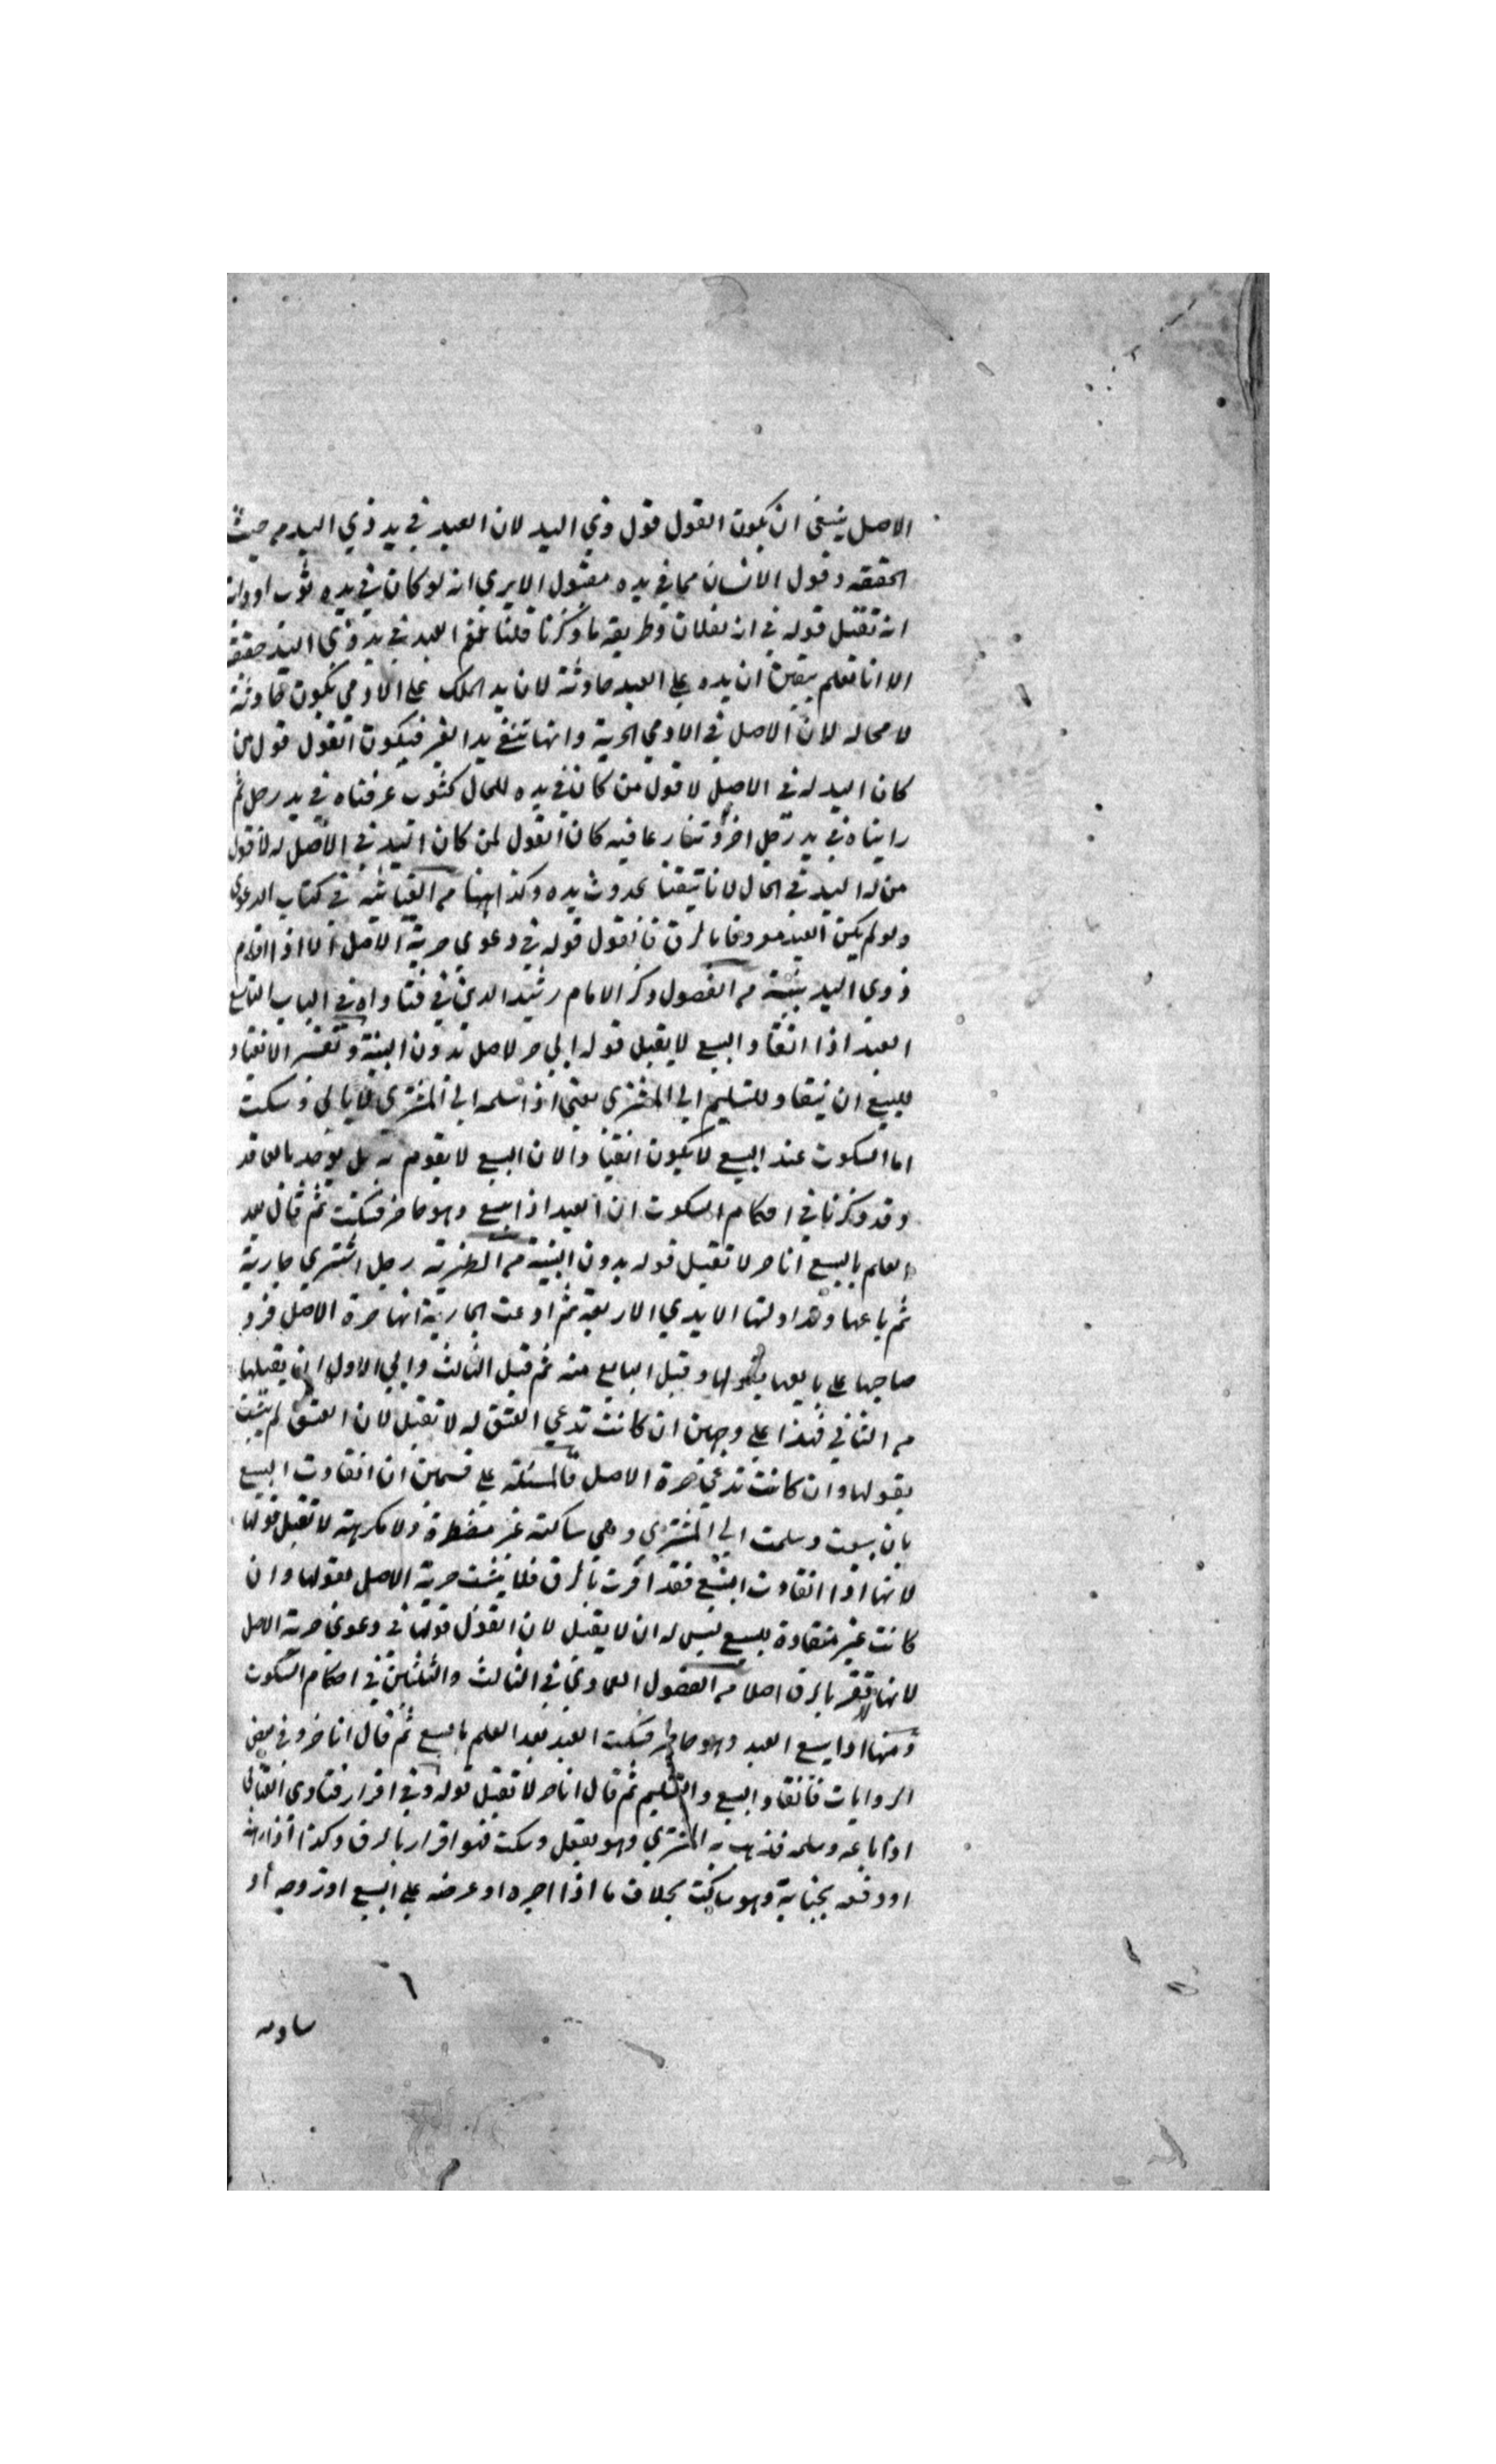 الاصل ينبغي ان يكون القول قول ذي اليد لان العبد في يد ذي اليد من حيث
الحقيقه وقول الانسان مما في يده مقبول الا يري انه لو كان في يده ثوب او دابة
انه تقبل قوله في انه لفلان وطريقه ما ذكرنا قلنا نعم العبد في يد ذي اليد حقيقة
الا انا نعلم بيقين ان يده علي العبد حادثة لان يد الملك علي الادمي يكون حادثة
لا محاله لان الاصل في الادمي الحرية وانها تنفي يد الغير فيكون القول قول من
كان اليد له في الاصل لا قول من كان في يده للحال كثوب عرفناه في يد رجل ثم
رايناه في يد رجل اخر وتنازعا فيه كان القول لمن كان اليد في الاصل له لا قول
من له اليد في الحال لانا تيقنا بحدوث يده وكذا ههنا من في كتاب الدعوي
ولو لم يكن العبد معروفا بالرق فالقول قوله في دعوي حرية الاصل الا اذا اقام
ذوي اليد بينة من الفصول ذكر الامام رشيد الدين في فتاواه في الباب التاسع
العبد اذا انقاد البيع لا يقبل قوله اني حر لاصل بدون البينة وتفسير الانقياد
للبيع ان ينقاد للتسليم الي المشتري يعني اذا سلمه الي المشتري لا يابي وسكت
اما السكوت عند البيع لا يكون انقيادا لان البيع لا يقوم به بل يوجد بالعاقد
وقد ذكرنا في احكام السكوت ان العبد اذا بيع وهو حاضر فسكت ثم قال بعد
العلم بالبيع انا حر لا تقبل قوله بدون البينة من رجل اشتري جارية
ثم باعها وتداولتها الايدي الاربعة ثم ادعت الجارية انها حرة الاصل فرد
صاحبها علي بايعها بقولها وقبل البايع منه ثم قبل الثالث وابي الاول ان يقبلها
من الثاني فهذا علي وجهين ان كانت تدعي العتق له لا تقبل لان العتق لم يثبت
بقولها وان كانت تدعي حرة الاصل فالمسئلة علي قسمين ان انقادت البيع
بان بيعت وسلمت الي المشتري وهي ساكتة غير مضطرة ولا مكرهة لا تقبل قولها
لانها اذا انقادت البيع فقد اقرت بالرق فلا يثبت حرية الاصل بقولها وان
كانت غير منقادة للبيع ليس له ان لا يقبل لان القول قولها في دعوي حرية الاصل
لانها لا تقر بالرق اصلا من الفصول العمادي في الثالث والثلثين في احكام السكوت
ومنها اذا بيع العبد وهو حاضر فسكت العبد بعد العلم بالبيع ثم قال انا حر وفي بعض
الروايات فانقاد البيع والتسليم ثم قال انا حر لا تقبل قوله وفي اقرار فتاوي القاني
اذا باعه وسلمه فذهب به المشتري وهو يعقل وسكت فهو اقرار بالرق وكذا اذا رهنه
او دفعه بجناية وهو ساكت بخلاف ما اذا اجره او عرضه علي البيع او زوجه او
ساومه